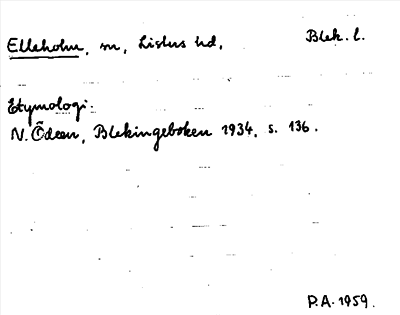 Elleholm, sn, Listers hd, Blek. l.
Etymologi:
N. Ödeen, Blekingeboken 1934, s. 136.
P.A. 1959.